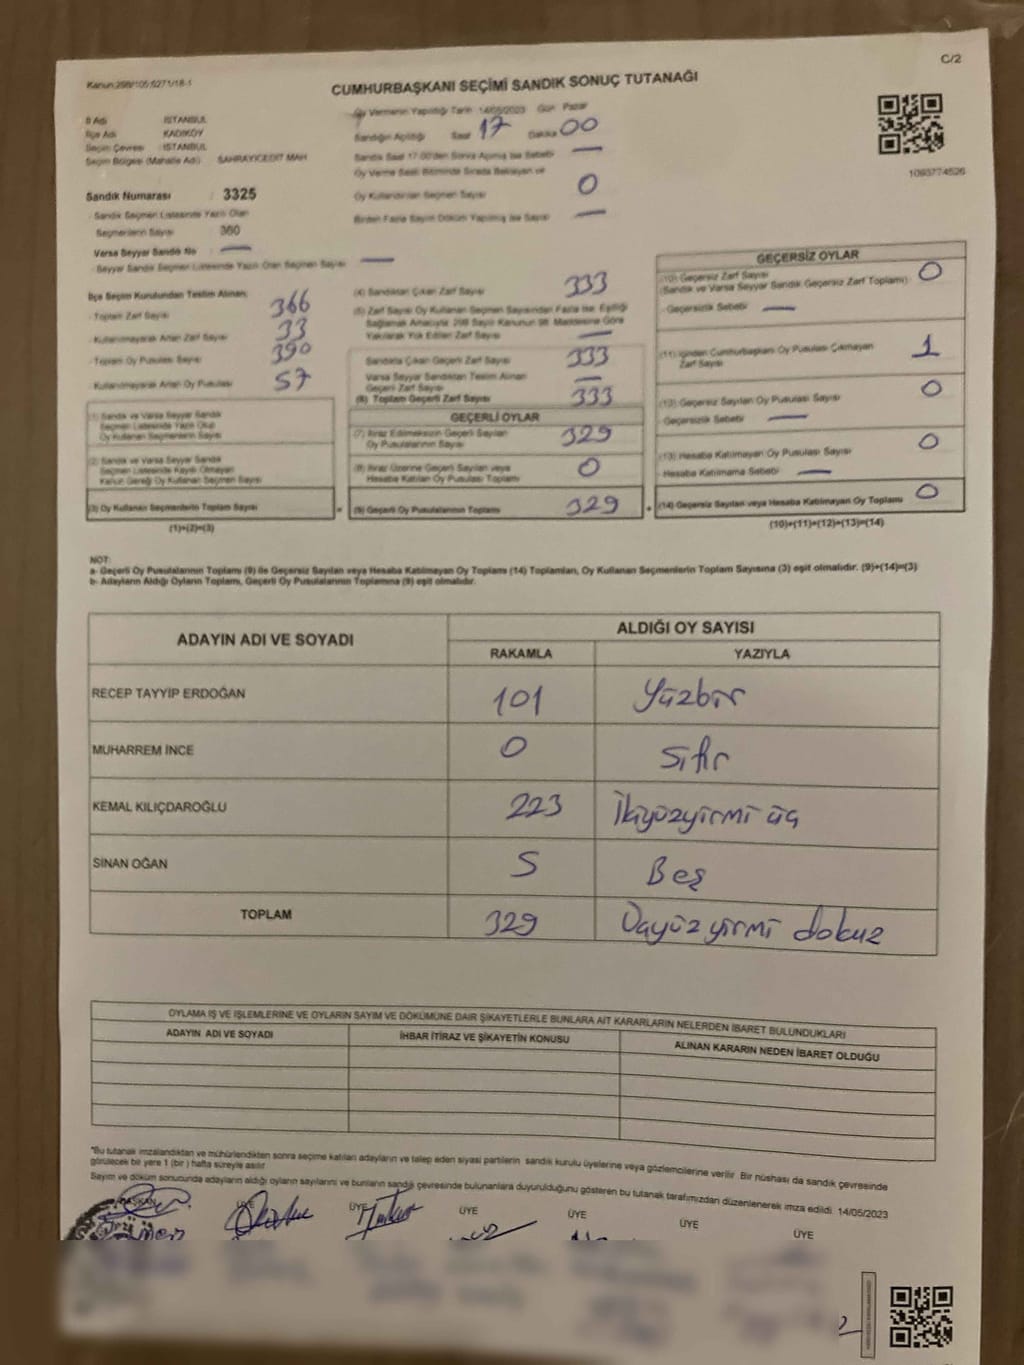 Kanun:298/105;6271/18-1
C/2
CUMHURBAŞKANI SEÇİMİ SANDIK SONUÇ TUTANAĞI
İl Adı : İSTANBUL
İlçe Adı : KADIKÖY
Seçim Çevresi : İSTANBUL
Seçim Bölgesi (Mahalle Adı) : SAHRAYICEDİT MAH
Sandık Numarası : 3325
Sandık Seçmen Listesinde Yazılı Olan
Seçmenlerin Sayısı : 360
Varsa Seyyar Sandık No : —
Seyyar Sandık Seçmen Listesinde Yazılı Olan Seçmen Sayısı : —
Oy Vermenin Yapıldığı Tarih 14/05/2023 Gün Pazar
Sandığın Açıldığı Saat 17 Dakika 00
Sandık Saat 17:00'den Sonra Açılmış İse Sebebi —
Oy Verme Saati Bitiminde Sırada Bekleyen ve
Oy Kullandırılan Seçmen Sayısı 0
Birden Fazla Sayım Döküm Yapılmış İse Sayısı —
1093774526
İlçe Seçim Kurulundan Teslim Alınan;
Toplam Zarf Sayısı 366
Kullanılmayarak Artan Zarf Sayısı 33
Toplam Oy Pusulası Sayısı 390
Kullanılmayarak Artan Oy Pusulası 57
(1) Sandık ve Varsa Seyyar Sandık
Seçmen Listesinde Yazılı Olup
Oy Kullanan Seçmenlerin Sayısı
(2) Sandık ve Varsa Seyyar Sandık
Seçmen Listesinde Kayıtlı Olmayan
Kanun Gereği Oy Kullanan Seçmen Sayısı
(3) Oy Kullanan Seçmenlerin Toplam Sayısı
(1)+(2)=(3)
(4) Sandıktan Çıkan Zarf Sayısı 333
(5) Zarf Sayısı Oy Kullanan Seçmen Sayısından Fazla İse, Eşitliği
Sağlamak Amacıyla 298 Sayılı Kanunun 98. Maddesine Göre
Yakılarak Yok Edilen Zarf Sayısı —
Sandıkta Çıkan Geçerli Zarf Sayısı 333
Varsa Seyyar Sandıktan Teslim Alınan
Geçerli Zarf Sayısı —
(6) Toplam Geçerli Zarf Sayısı 333
GEÇERLİ OYLAR
(7) İtiraz Edilmeksizin Geçerli Sayılan
Oy Pusulalarının Sayısı 329
(8) İtiraz Üzerine Geçerli Sayılan veya
Hesaba Katılan Oy Pusulası Toplamı 0
(9) Geçerli Oy Pusulalarının Toplamı 329
GEÇERSİZ OYLAR
(10) Geçersiz Zarf Sayısı
(Sandık ve Varsa Seyyar Sandık Geçersiz Zarf Toplamı) 0
Geçersizlik Sebebi —
(11) İçinden Cumhurbaşkanı Oy Pusulası Çıkmayan
Zarf Sayısı 1
(12) Geçersiz Sayılan Oy Pusulası Sayısı 0
Geçersizlik Sebebi —
(13) Hesaba Katılmayan Oy Pusulası Sayısı 0
Hesaba Katılmama Sebebi —
(14) Geçersiz Sayılan veya Hesaba Katılmayan Oy Toplamı 0
(10)+(11)+(12)+(13)=(14)
NOT:
a- Geçerli Oy Pusulalarının Toplamı (9) ile Geçersiz Sayılan veya Hesaba Katılmayan Oy Toplamı (14) Toplamları, Oy Kullanan Seçmenlerin Toplam Sayısına (3) eşit olmalıdır. (9)+(14)=(3)
b- Adayların Aldığı Oyların Toplamı, Geçerli Oy Pusulalarının Toplamına (9) eşit olmalıdır.
ADAYIN ADI VE SOYADI ALDIĞI OY SAYISI
RAKAMLA YAZIYLA
RECEP TAYYİP ERDOĞAN 101 Yüzbir
MUHARREM İNCE 0 Sıfır
KEMAL KILIÇDAROĞLU 223 İkiyüzyirmi üç
SİNAN OĞAN 5 Beş
TOPLAM 329 Üçyüz yirmi dokuz
OYLAMA İŞ VE İŞLEMLERİNE VE OYLARIN SAYIM VE DÖKÜMÜNE DAİR ŞİKAYETLERLE BUNLARA AİT KARARLARIN NELERDEN İBARET BULUNDUKLARI
ADAYIN ADI VE SOYADI İHBAR İTİRAZ VE ŞİKAYETİN KONUSU ALINAN KARARIN NEDEN İBARET OLDUĞU
*Bu tutanak imzalandıktan ve mühürlendikten sonra seçime katılan adayların ve talep eden siyasi partilerin sandık kurulu üyelerine veya gözlemcilerine verilir. Bir nüshası da sandık çevresinde
görülecek bir yere 1 (bir) hafta süreyle asılır.
Sayım ve döküm sonucunda adayların aldığı oyların sayılarını ve bunların sandık çevresinde bulunanlara duyurulduğunu gösteren bu tutanak tarafımızdan düzenlenerek imza edildi. 14/05/2023
BAŞKAN ÜYE ÜYE ÜYE ÜYE ÜYE ÜYE